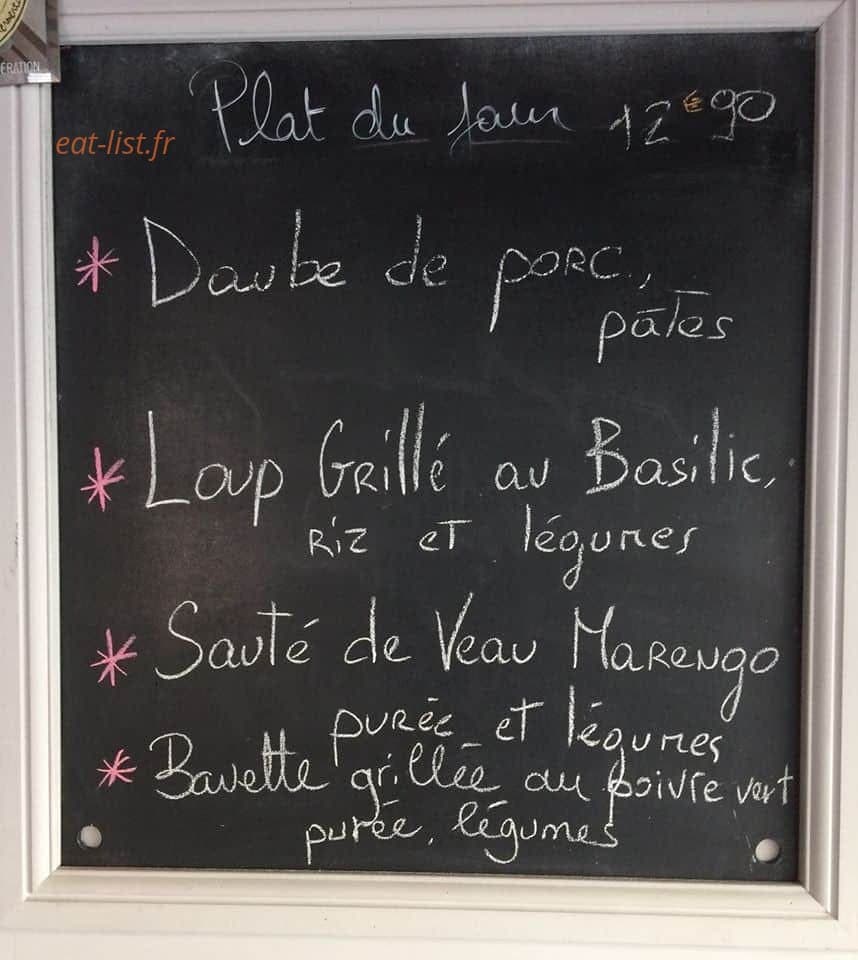 ÉRATION
eat-list.fr
Plat du jour 12€90
* Daube de porc,
pâtes
* Loup Grillé au Basilic,
riz et légumes
* Sauté de Veau Marengo
purée et légumes
* Bavette grillée au poivre vert
purée, légumes